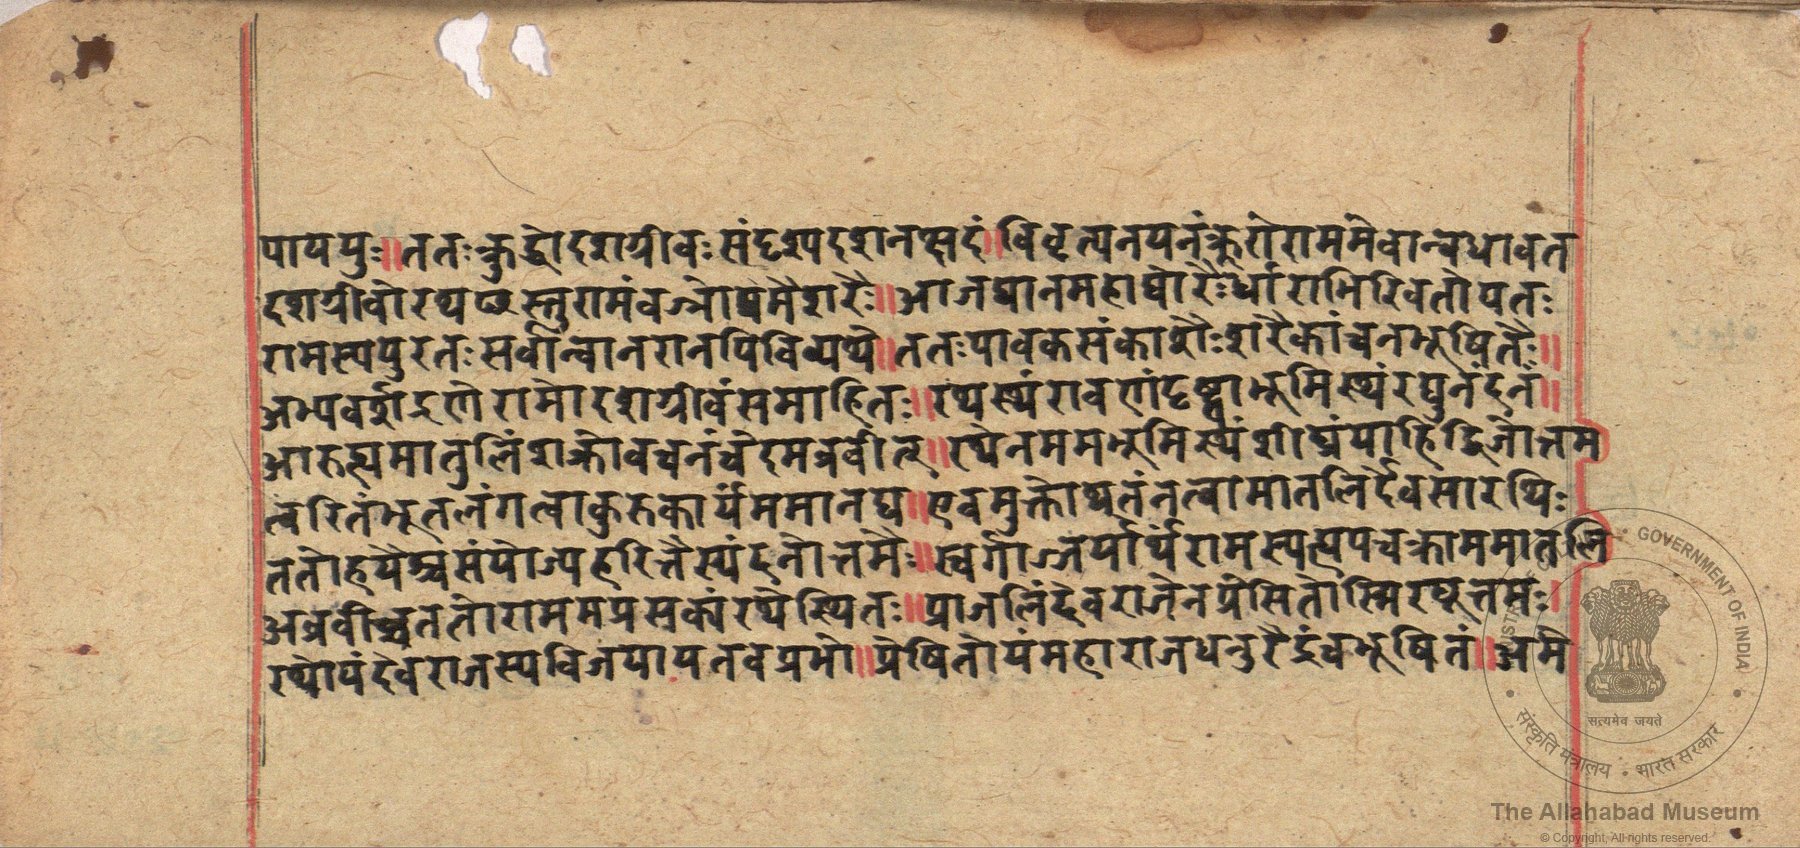 पाययुः॥ततःक्रुद्धोदशग्रीवःसंदृश्यदशनछदं॥विवृत्यनयनंक्रूरोराममेवान्वधावत
दशग्रीवोरथछस्तुरामंवज्रोपमैशरैः॥आजघानमहाघोरैःर्धाराभिरिवतोयतः
रामस्यपुरतःसर्वान्वानरानपिविव्यथे॥ततःपावकसंकाशैःशरैकांचनभूषितैः॥
अभ्यवर्शद्रणेरामोदशग्रीवंसमाहितः॥रथस्थंरावणंदृष्ट्वाभूमिस्थंरघुनंदनं॥
आहूत्यमातुलिंशक्रोवचनंचेदमब्रवीत्॥रथेनममभूमिस्थंशीघ्रंयाहिद्विजोत्तम
त्वरितंभूतलंगत्वाकुरुकार्यंममानघ॥एवमुक्तोथतंनत्वामातलिर्देवसारथिः
ततोहयैश्चसंयोज्यहरितैस्यंदनोत्तमैः॥स्वर्गाज्जयार्थंरामस्यत्युपचक्राममातलि
अब्रवीच्चततोराममप्रसक्यंरथेस्थितः॥प्राजलिंदेवराजेनप्रेसितोस्मिरघूत्तमः।
रथोयंदेवराजस्यविजयायतवप्रभो॥प्रेषितोयंमहाराजधनुरैंद्रंचभूषितं॥अमे
GOVERNMENT OF INDIA
सत्यमेव जयते
संस्कृति मंत्रालय • भारत सरकार
The Allahabad Museum
© Copyright, All rights reserved.